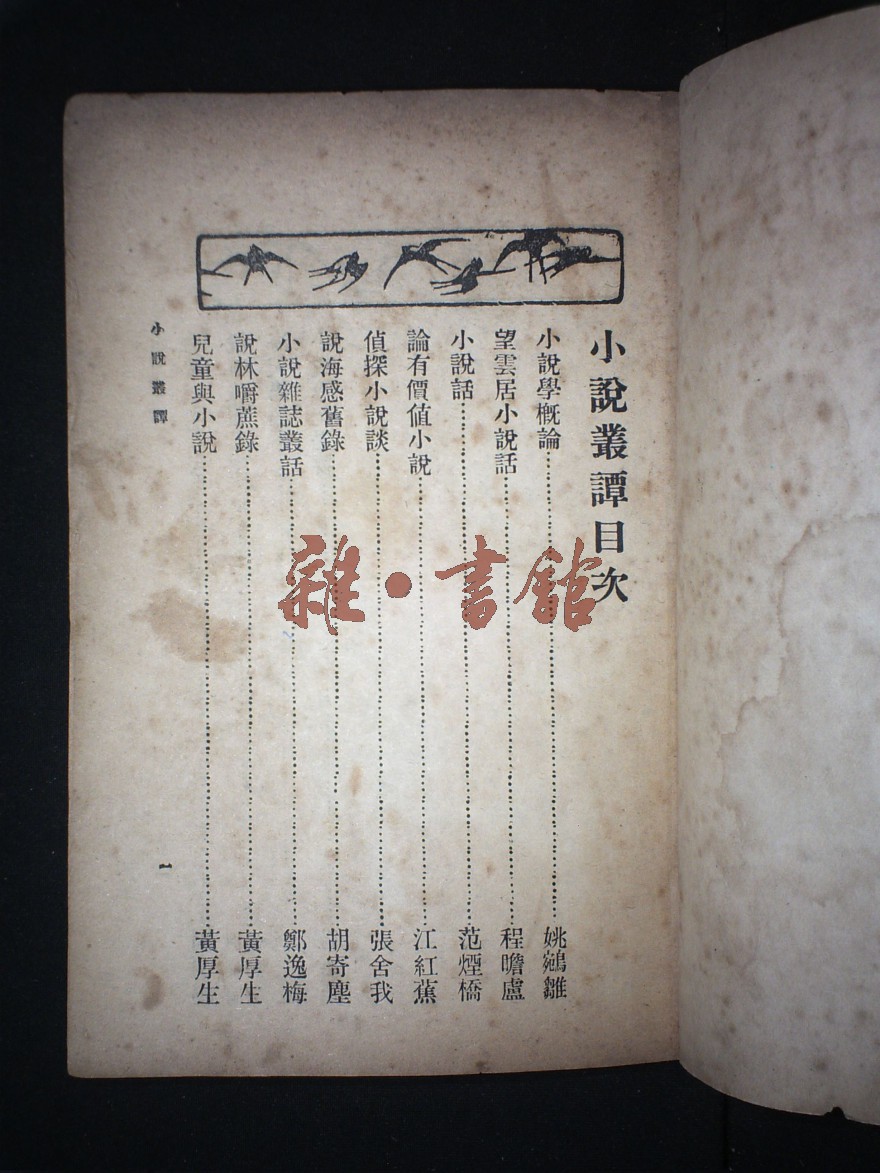 小說叢譚目次
小說學概論……姚鵷雛
望雲居小說話……程瞻盧
小說話……范煙橋
論有價値小說……江紅蕉
偵探小說談……張舍我
說海感舊錄……胡寄塵
小說雜誌叢話……鄭逸梅
說林嚼蔗錄……黃厚生
兒童與小說……黃厚生
小說叢譚
一
雜·書館